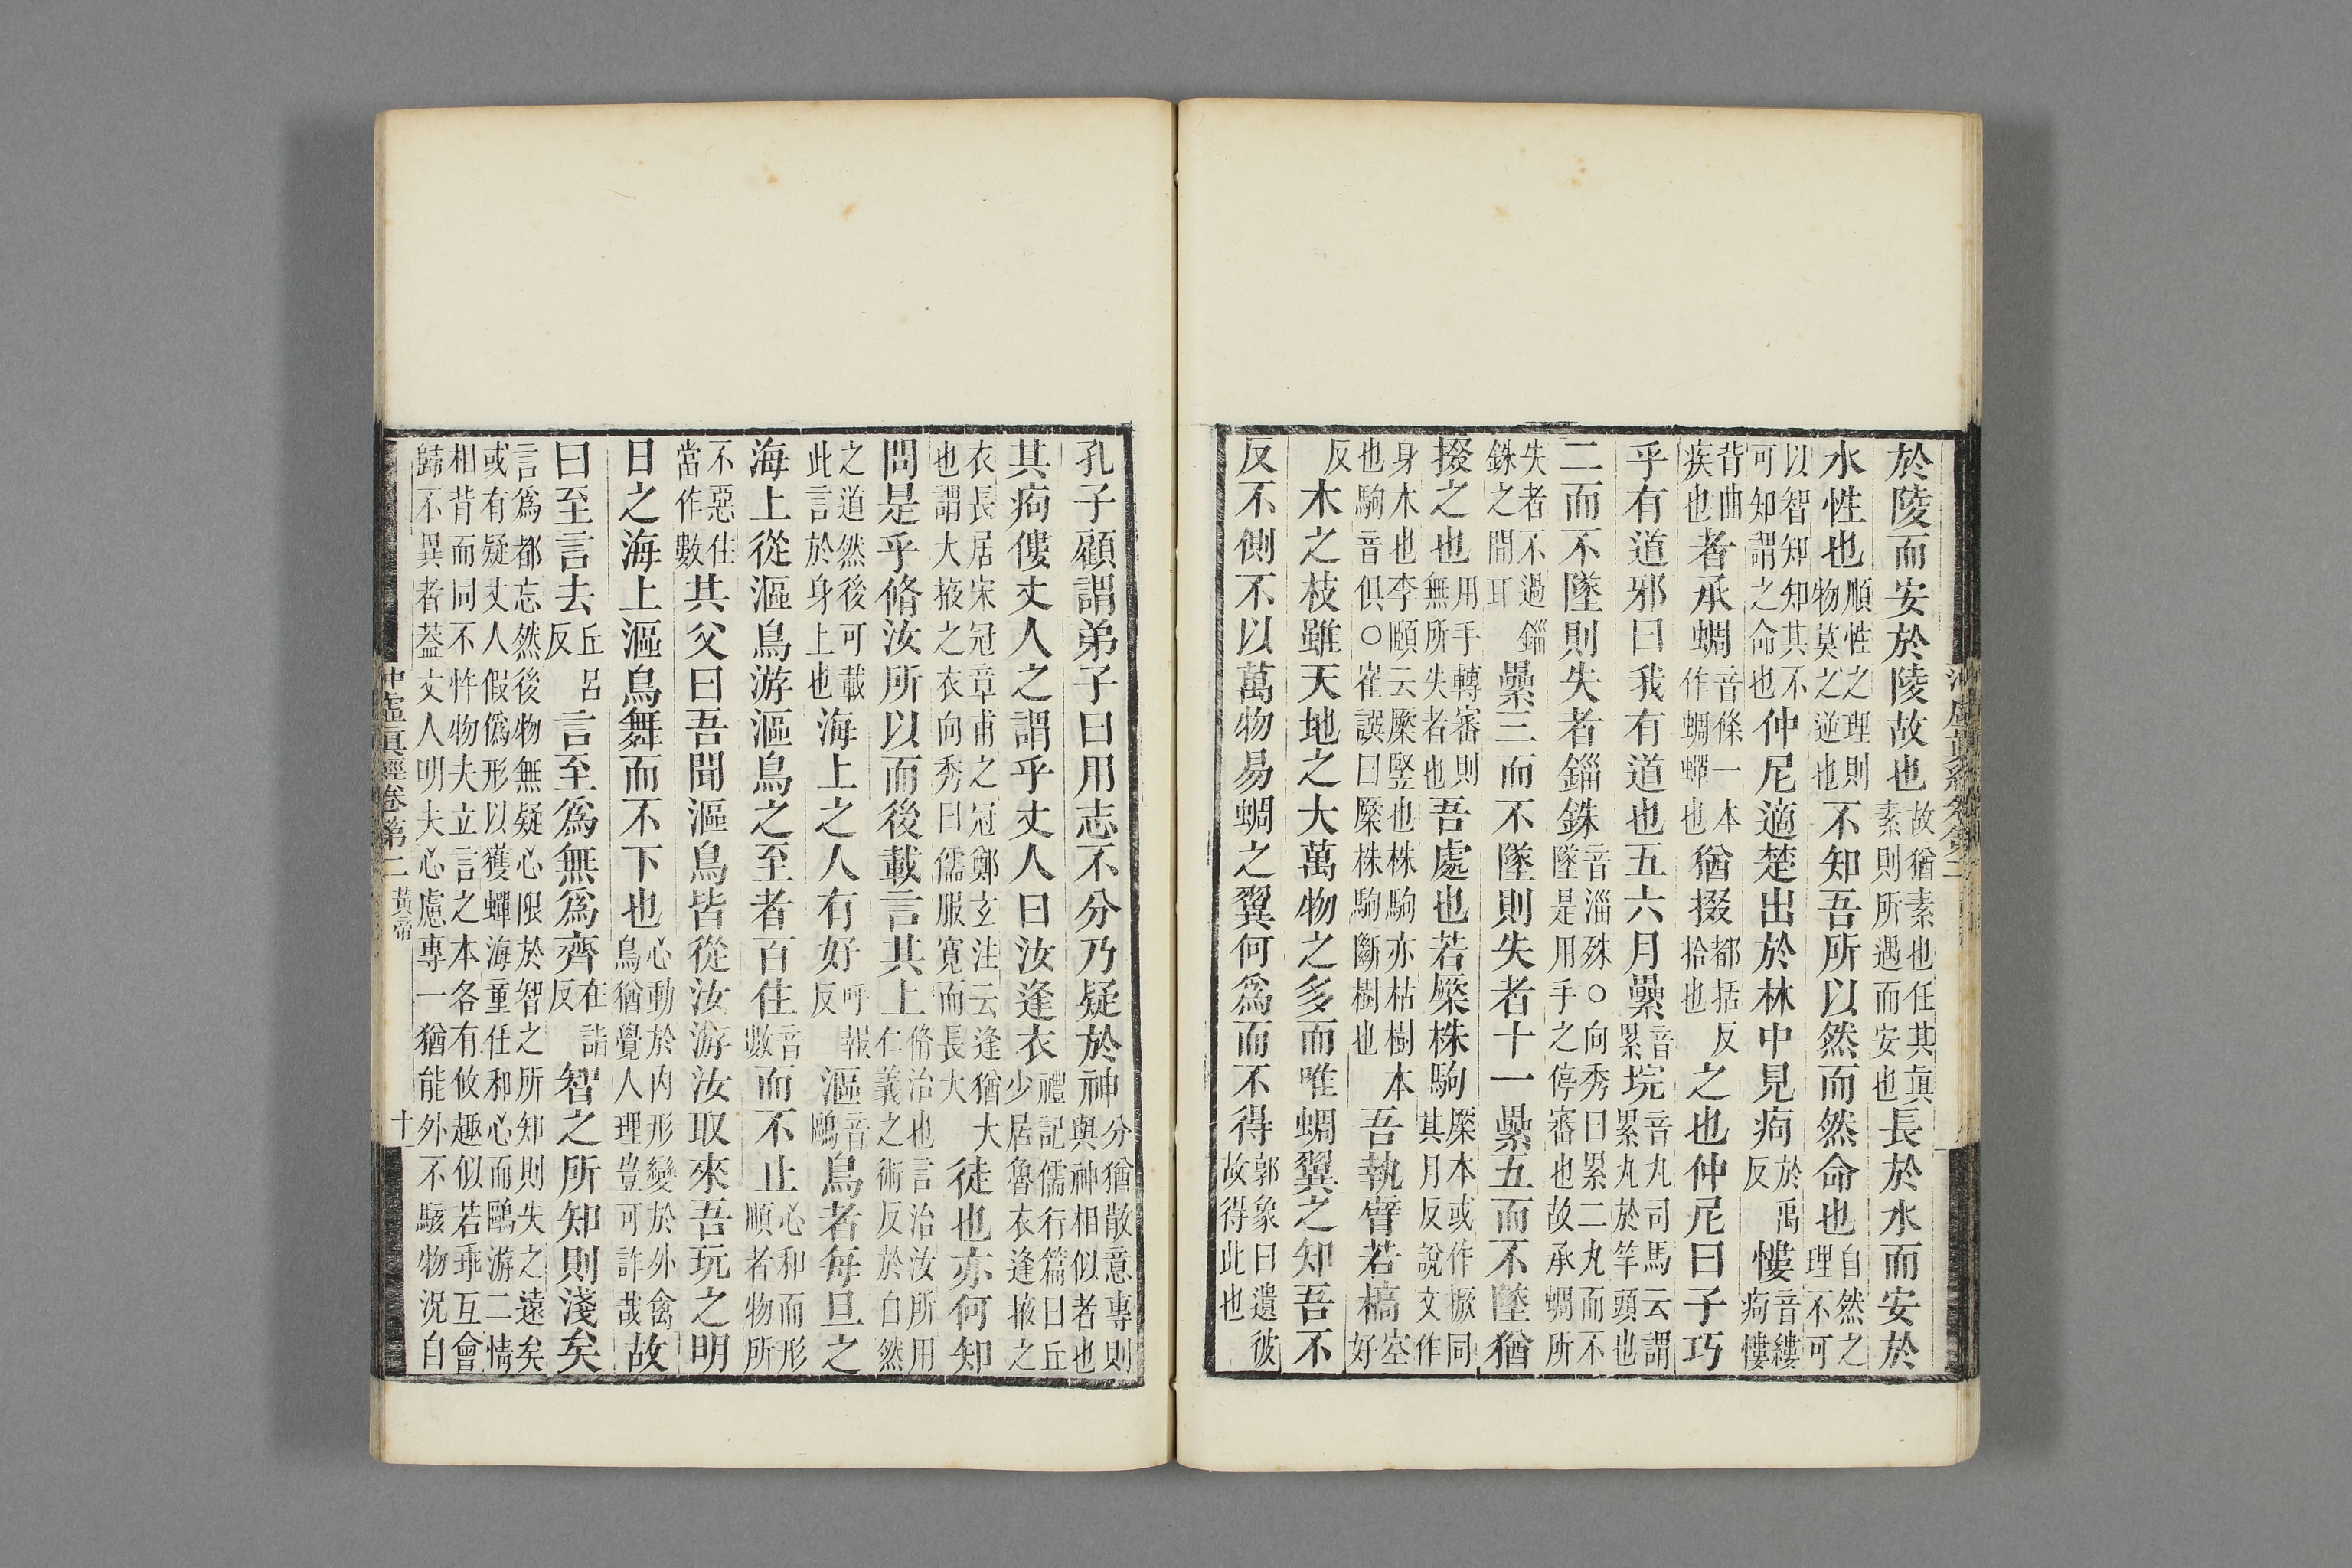 於陵而安於陵故也故猶素也任其真素則所遇而安也長於水而安於
水性也順性之理則物莫之逆也不知吾所以然而然命也自然之理不可
以智知知其不可知謂之命也仲尼適楚出於林中見痀於禹反僂音縷痀僂
背曲疾也者承蜩音條一本作蜩蟬也猶掇都括反拾也之也仲尼曰子巧
乎有道邪曰我有道也五六月纍音累垸音丸司馬云謂累丸於竿頭也
二而不墜則失者錙銖音淄殊○向秀曰累二丸而不墜是用手之停審也故承蜩所
失者不過錙銖之間耳纍三而不墜則失者十一纍五而不墜猶
掇之也用手轉審則無所失者也吾處也若橜株駒橜本或作橛同其月反說文作
身木也李頤云橜豎也株駒亦枯樹本也駒音俱○崔譔曰橜株駒斷樹也吾執臂若槁空好
反木之枝雖天地之大萬物之多而唯蜩翼之知吾不
反不側不以萬物易蜩之翼何爲而不得郭象曰遺彼故得此也
沖虛真經卷第二
孔子顧謂弟子曰用志不分乃疑於神分猶散意專則與神相似者也
其痀僂丈人之謂乎丈人曰汝逢衣禮記儒行篇曰丘少居魯衣逢掖之
衣長居宋冠章甫之冠鄭玄注云逢猶大也謂大掖之衣向秀曰儒服寬而長大徒也亦何知
問是乎脩汝所以而後載言其上脩治也言治汝所用仁義之術反於自然
之道然後可載此言於身上也海上之人有好呼報反漚音鷗鳥者每旦之
海上從漚鳥游漚鳥之至者百住音數而不止心和而形順者物所
不惡住當作數其父曰吾聞漚鳥皆從汝游汝取來吾玩之明
日之海上漚鳥舞而不下也心動於內形變於外禽鳥猶覺人理豈可詐哉故
曰至言去丘呂反言至爲無爲齊在詣反智之所知則淺矣
言爲都忘然後物無疑心限於智之所知則失之遠矣或有疑丈人假僞形以獲蟬海童任和心而鷗游二情
相背而同不忤物夫立言之本各有攸趣似若乖互會歸不異者蓋丈人明夫心慮專一猶能外不駭物況自
沖虛真經卷第二 黃帝 十